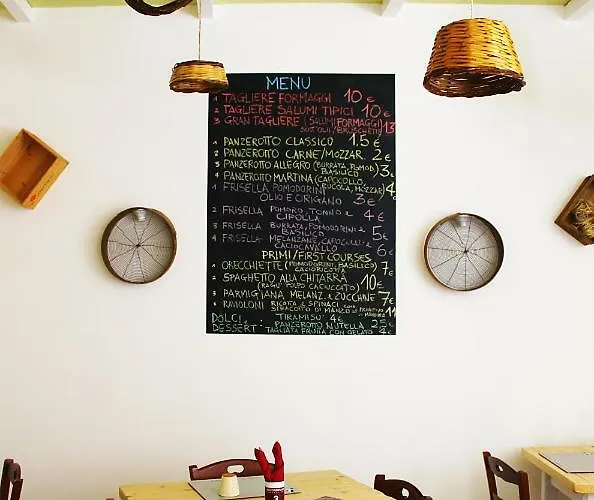 MENU
1 TAGLIERE FORMAGGI 10 €
2 TAGLIERE SALUMI TIPICI 10 €
3 GRAN TAGLIERE (SALUMI FORMAGGI 13
SOTTOLI/BRUSCHETTE
1 PANZEROTTO CLASSICO 1.5 €
2 PANZEROTTO CARNE/MOZZAR. 2 €
3 PANZEROTTO ALLEGRO (BURRATA POMOD) 3 €
BASILICO
4 PANZEROTTO MARTINA (CAPOCOLLO, 4
1 FRISELLA POMODORINI RUCOLA, MOZZAR)
OLIO E ORIGANO 3 €
2 FRISELLA POMODRO, TONNO E 4 €
CIPOLLA
3 FRISELLA BURRATA, POMODORINI E 5 €
BASILICO
4 FRISELLA MELANZANE, CAPOCOLLO E 6 €
CACIOCAVALLO
PRIMI/FIRST COURSES
1 ORECCHIETTE (POMODORINI, BASILICO) 7 €
CACIORICOTTA
2 SPAGHETTO ALLA CHITARRA 10 €
(RAGU' POLPO CACIUCCATO)
3 PARMIGIANA MELANZ. E ZUCCHINE 7 €
4 RAVIOLONI RICOTTA E SPINACI CON 11
STRACOTTO DI MANZO AL PRIMITIVO
DOLCI TIRAMISU' 4 €
DESSERT: PANZEROTTO NUTELLA 2.5 €
TAGLIATA FRUTTA CON GELATO 4 €